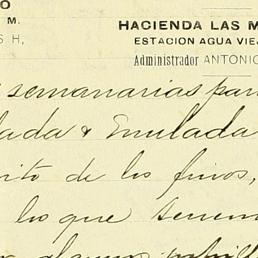 O
M.
S H,
HACIENDA LAS M
ESTACION AGUA VIE
Administrador ANTONIO
semanarias para
lada & Emulada
ito de los finos,
los que
algunos